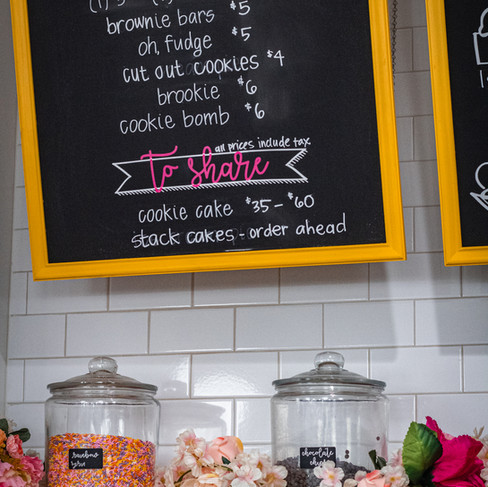 brownie bars $5
oh, fudge $5
cut out cookies $4
brookie $6
cookie bomb $6
all prices include tax
to share
cookie cake $35 - $60
stack cakes - order ahead
rainbow
chocolate
chips